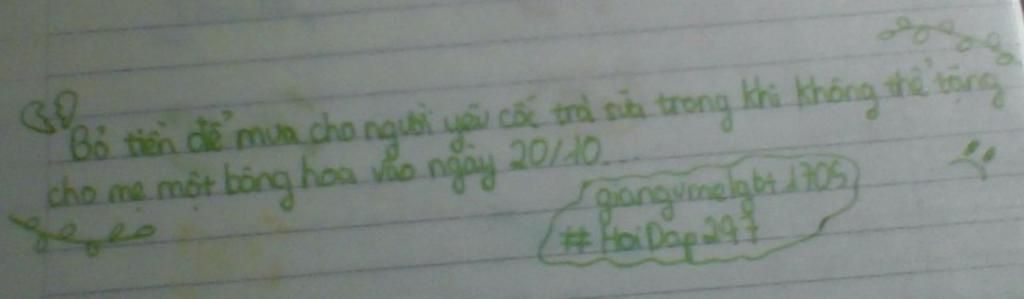 Bỏ tiền để mua cho người yêu cốc trà sữa trong khi không thể tặng
cho mẹ một bông hoa vào ngày 20/10...
giangvmelgbt1705
#HoiDap297